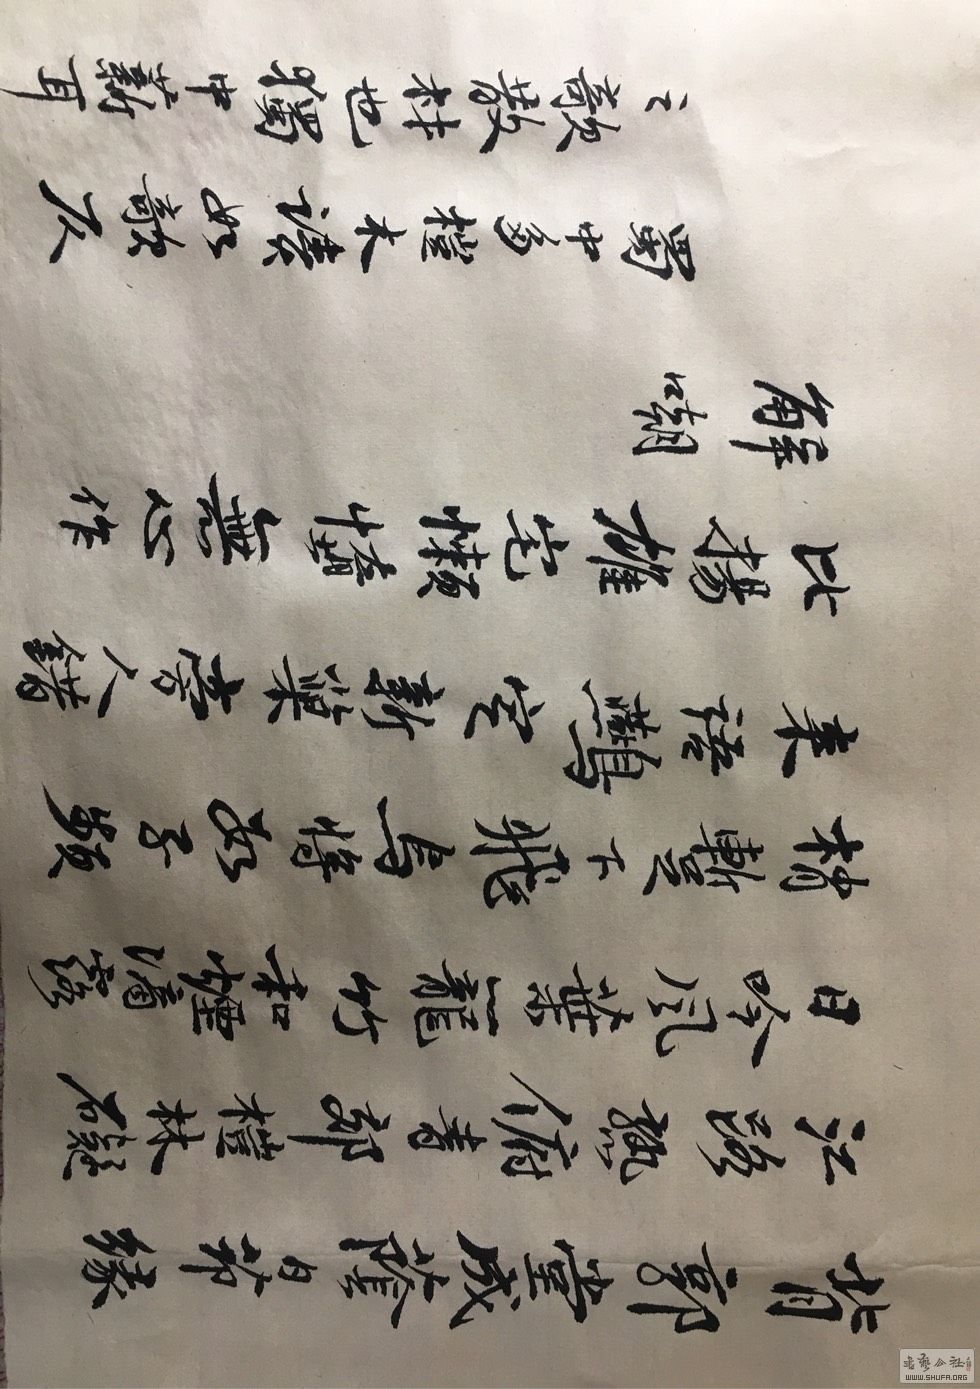 背郭堂成蔭白茆緣
江路熟俯青郊榿林礙
日吟風葉籠竹和煙滴露
梢暫下飛烏將數子頻
來語鷰定新巢旁人錯
比揚雄宅懶惰無心作
解嘲
蜀中多榿木讀如欹仄
之欹散材也獨中薪耳
書藝公社
WWW.SHUFA.ORG